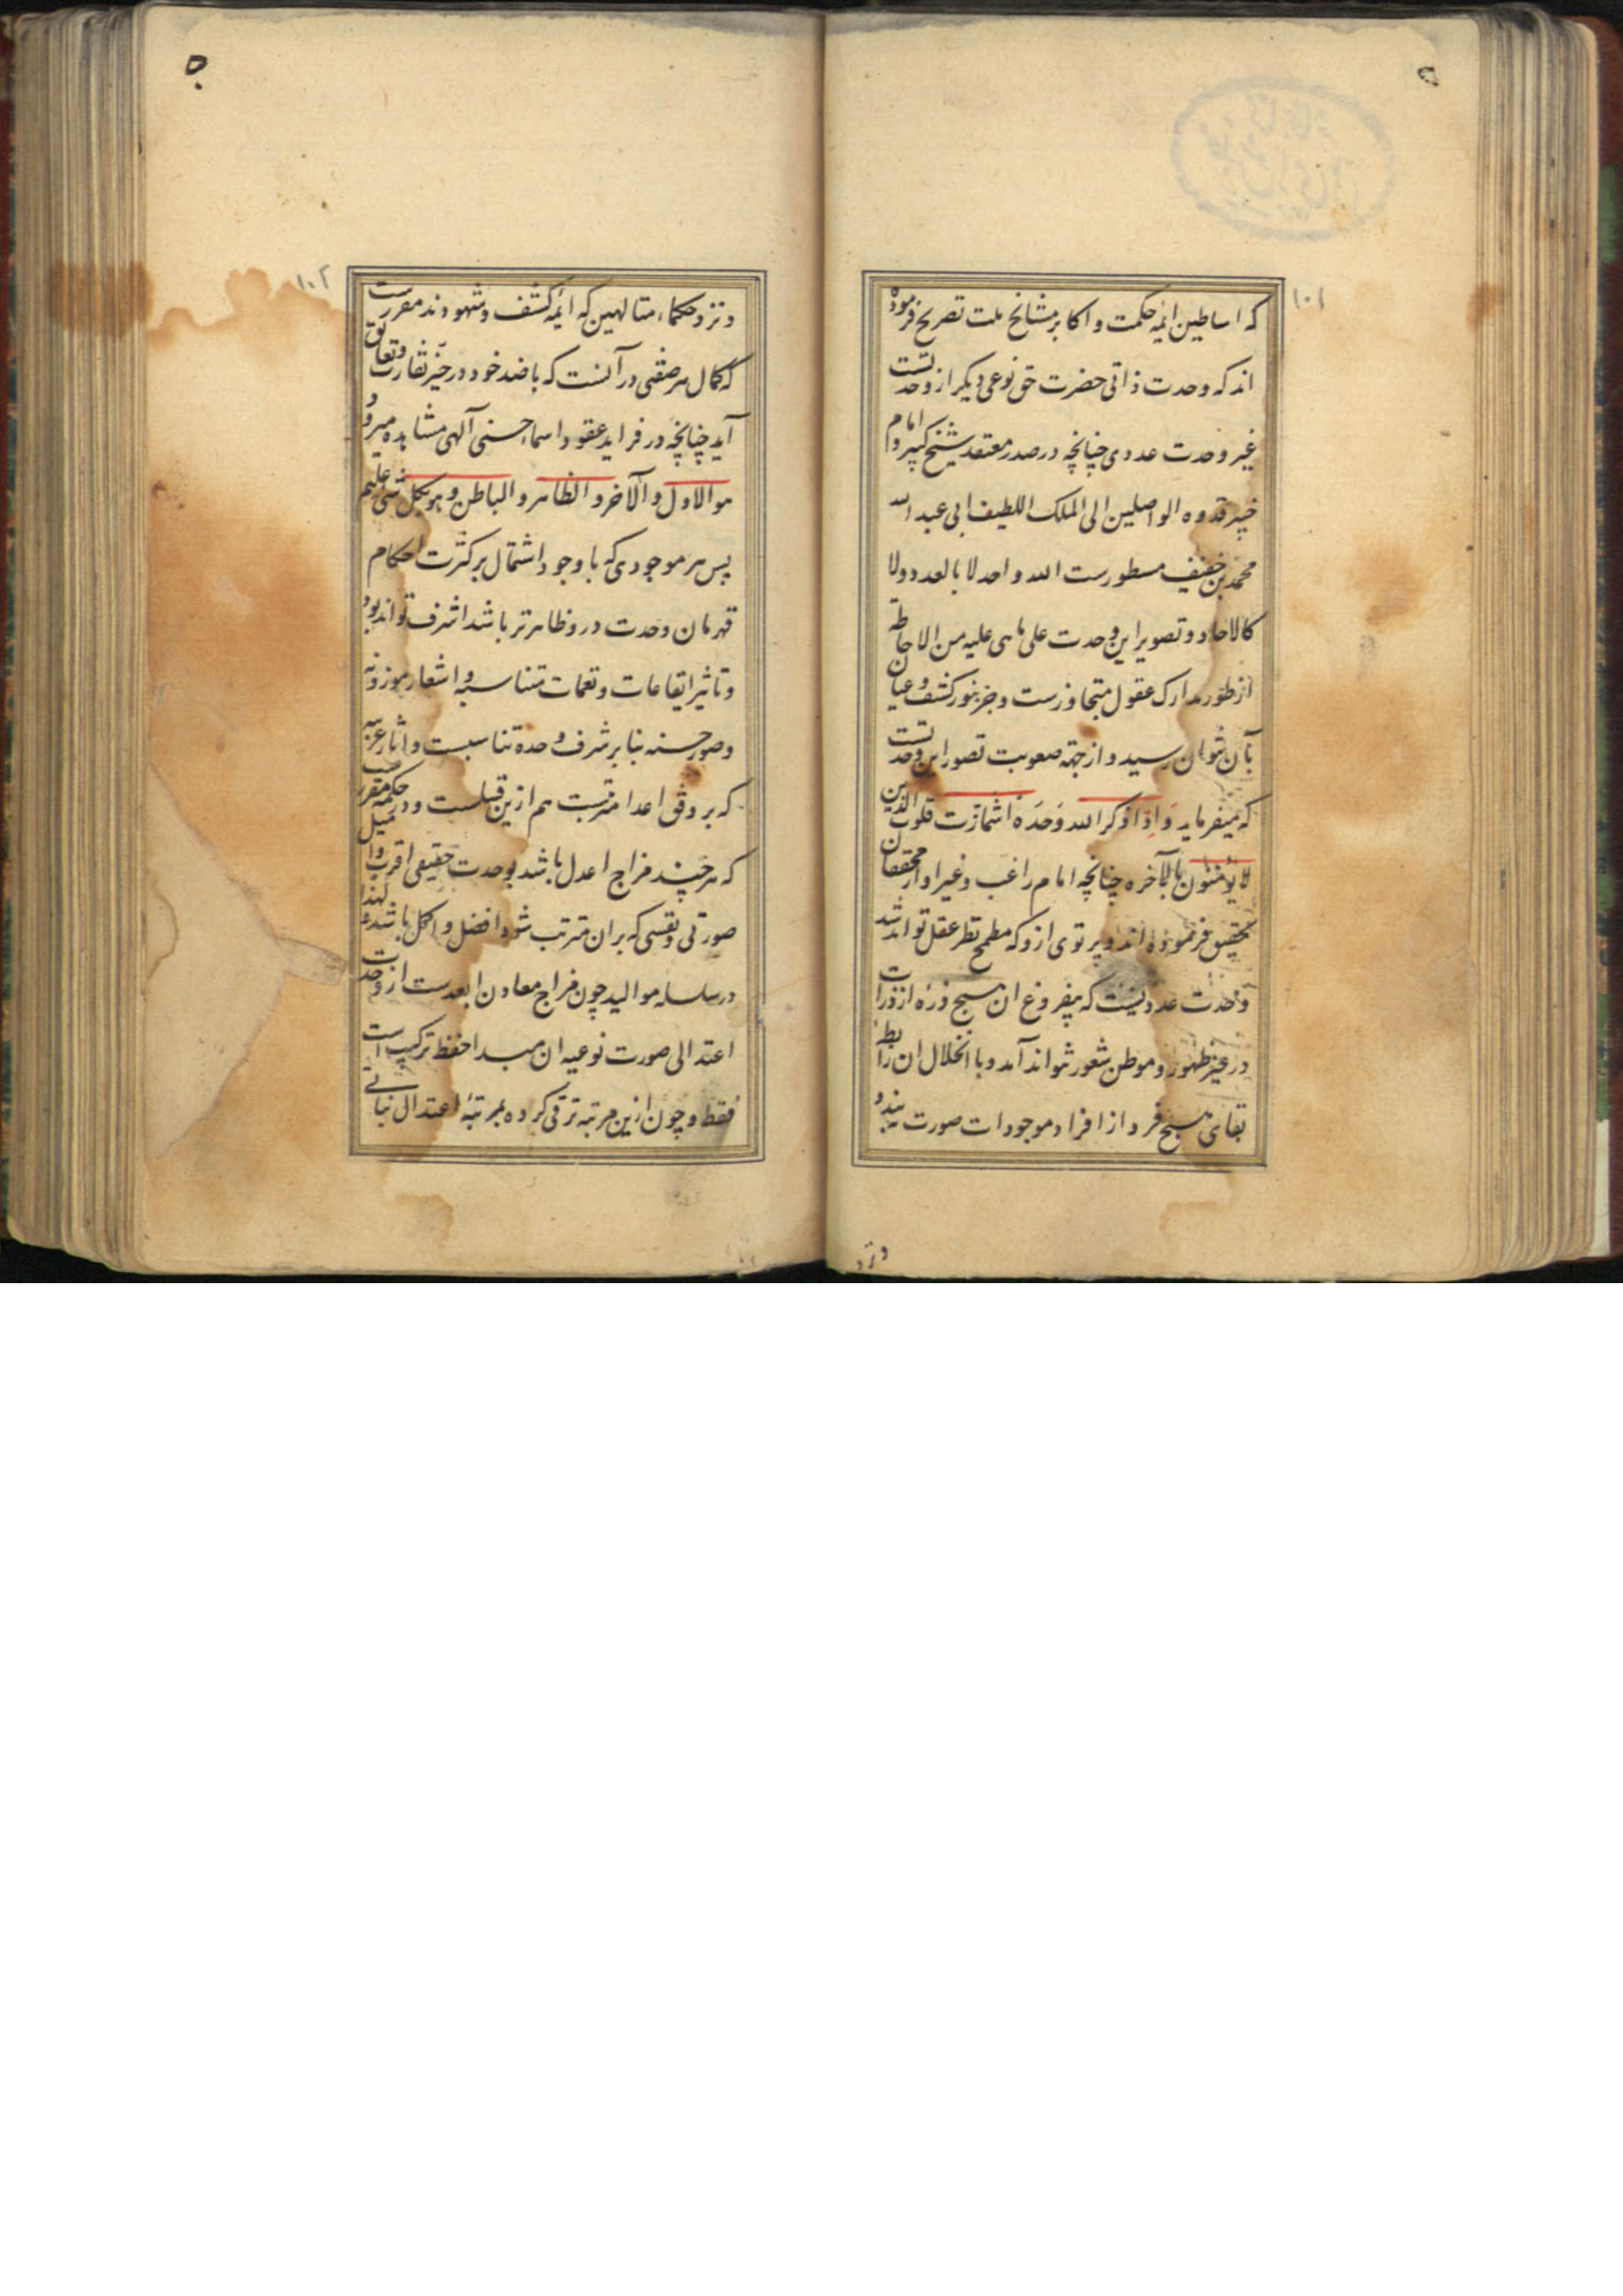 ۱۰۱
که اساطین ائمه حکمت و اکابر مشایخ ملت تصریح فرموده
اند که وحدت ذاتی حضرت حق نوعی دیگر از وحدتست
غیر وحدت عددی چنانچه در صدر معتقد شیخ کبیر و امام
خبیر قدوه الواصلین الی الملک اللطیف ابی عبد الله
محمد بن خفیف مسطورست الله واحد لا بالعدد ولا
کالاحاد و تصویر این وحدت علی ما هی علیه من الاحاطه
از طور مدارک عقول متجاوزست و جز بنور کشف و عیان
بآن نتوان رسید و از جهة صعوبت تصور این وحدتست
که میفرماید وَاِذا ذکر الله وَحدَه اشمازت قلوب الذین
لا یؤمنون بالآخره چنانچه امام راغب و غیر او از محققان
تحقیق فرموده اند و پرتوی ازو که مطمح نظر عقل تواند شد
وحدت عددیست که بیفروغ ان هیچ ذره از ذرات
در حیز ظهور و موطن شعور نتواند آمد و با انحلال ان رابطه
بقای هیچ فرد از افراد موجودات صورت نبندد
ونزد
۱۰۲
ونزد حکماء متالهین که ائمه کشف و شهودند مقررست
که کمال هر صفتی در آنست که با ضد خود در حیز تقارب و تعانق
آید چنانچه در فراید عقود اسماء حسنی آلهی مشاهده میرود
هو الاول و الآخر و الظاهر و الباطن و هو بکل شی علیم
پس هر موجودی که با وجود اشتمال بر کثرت احکام
قهرمان وحدت درو ظاهرتر باشد اشرف تواند بود
و تاثیر ایقاعات و نغمات متناسبه و اشعار موزونه
و صور حسنه بنابر شرف وحدة تناسبست و اثار غریبه
که بر وفق اعداد مترتبست هم ازین قبیلست و در حکمة مقررست
که هر چند مزاج اعدل باشد بوحدت حقیقی اقرب و امیل
صورتی و نفسی که بران مترتب شود افضل و اکمل باشد و لهذا
در سلسله موالید چون مزاج معادن ابعدست از وحدت
اعتدالی صورت نوعیه ان مبدا حفظ ترکیب است
فقط و چون ازین مرتبه ترقی کرده بمرتبه اعتدال نباتی